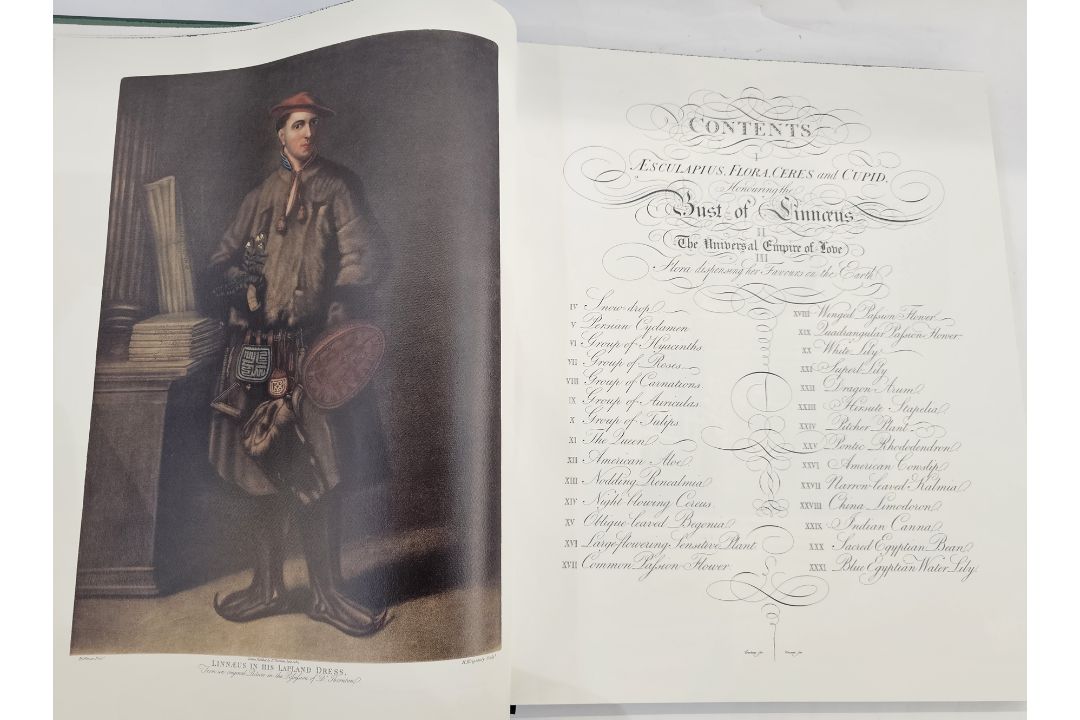 LINNÆUS IN HIS LAPLAND DRESS.
From an original Picture in the Possession of Dr. Thornton.
CONTENTS
I
ÆSCULAPIUS, FLORA, CERES and CUPID,
Honouring the
Bust of Linnæus
II
The Universal Empire of Love
III
Flora dispensing her Favours on the Earth
IV Snow-drop
V Persian Cyclamen
VI Group of Hyacinths
VII Group of Roses
VIII Group of Carnations
IX Group of Auriculas
X Group of Tulips
XI The Queen
XII American Aloe
XIII Nodding Renealmia
XIV Night-blowing Cereus
XV Oblique-leaved Begonia
XVI Large-flowering Sensitive Plant
XVII Common Passion-Flower
XVIII Winged Passion-Flower
XIX Quadrangular Passion-Flower
XX White Lily
XXI Superb Lily
XXII Dragon Arum
XXIII Hirsute Stapelia
XXIV Pitcher Plant
XXV Pontic Rhododendron
XXVI American Cowslip
XXVII Narrow-leaved Kalmia
XXVIII China Limodoron
XXIX Indian Canna
XXX Sacred Egyptian Bean
XXXI Blue Egyptian Water Lily